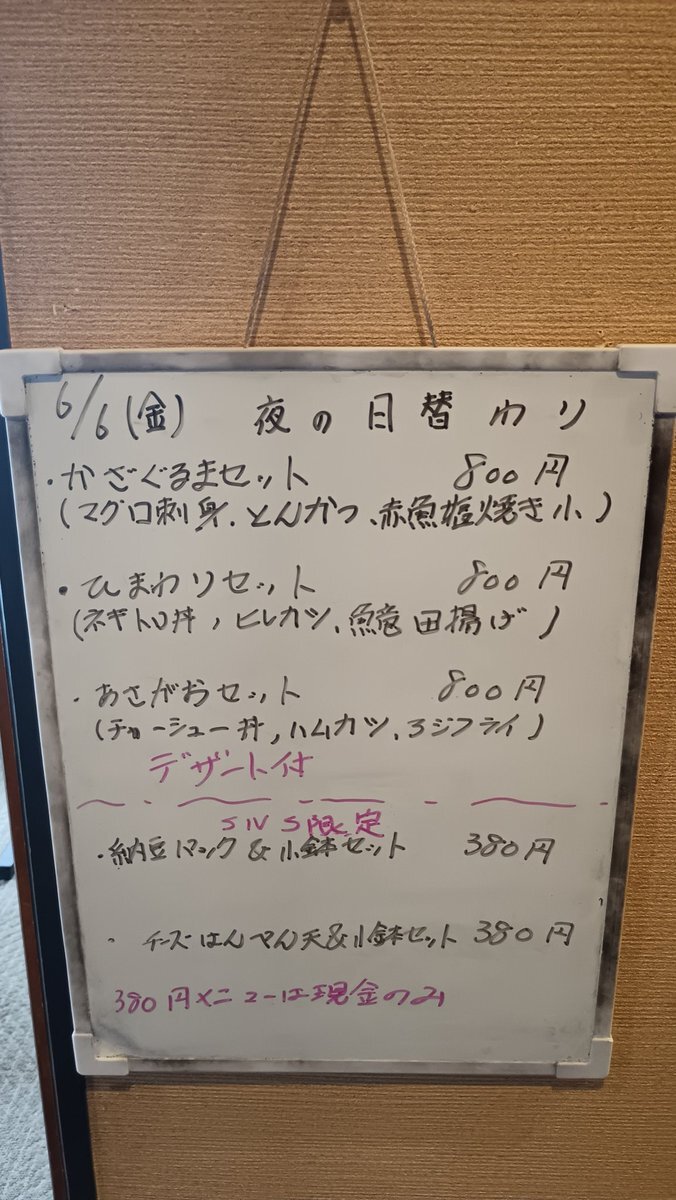 6/6(金) 夜の日替わり
・かざぐるまセット 800円
(マグロ刺身、とんかつ、赤魚塩焼き小)
・ひまわりセット 800円
(ネギトロ丼、ヒレカツ、魚竜田揚げ)
・あさがおセット 800円
(チャーシュー丼、ハムカツ、アジフライ)
デザート付
SNS限定
・納豆 & 小鉢セット 380円
・チーズはんぺん天&小鉢セット 380円
380円メニューは現金のみ